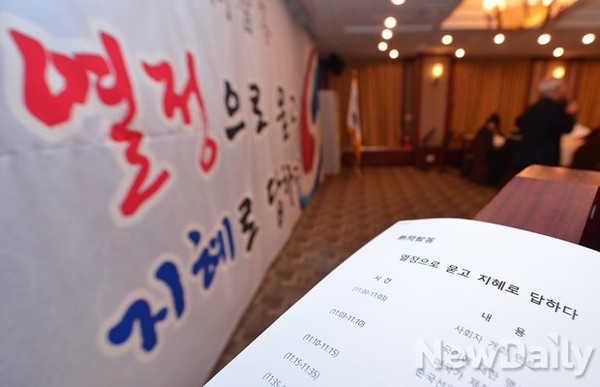 열정으로 묻고
지혜로 답하
熱問智答
열정으로 묻고 지혜로 답하다
시 간
내 용
(11:00-11:03)
사회자
(11:03-11:10)
(11:10-11:15)
(11:15-11:35)
(11:35-
NewDaily